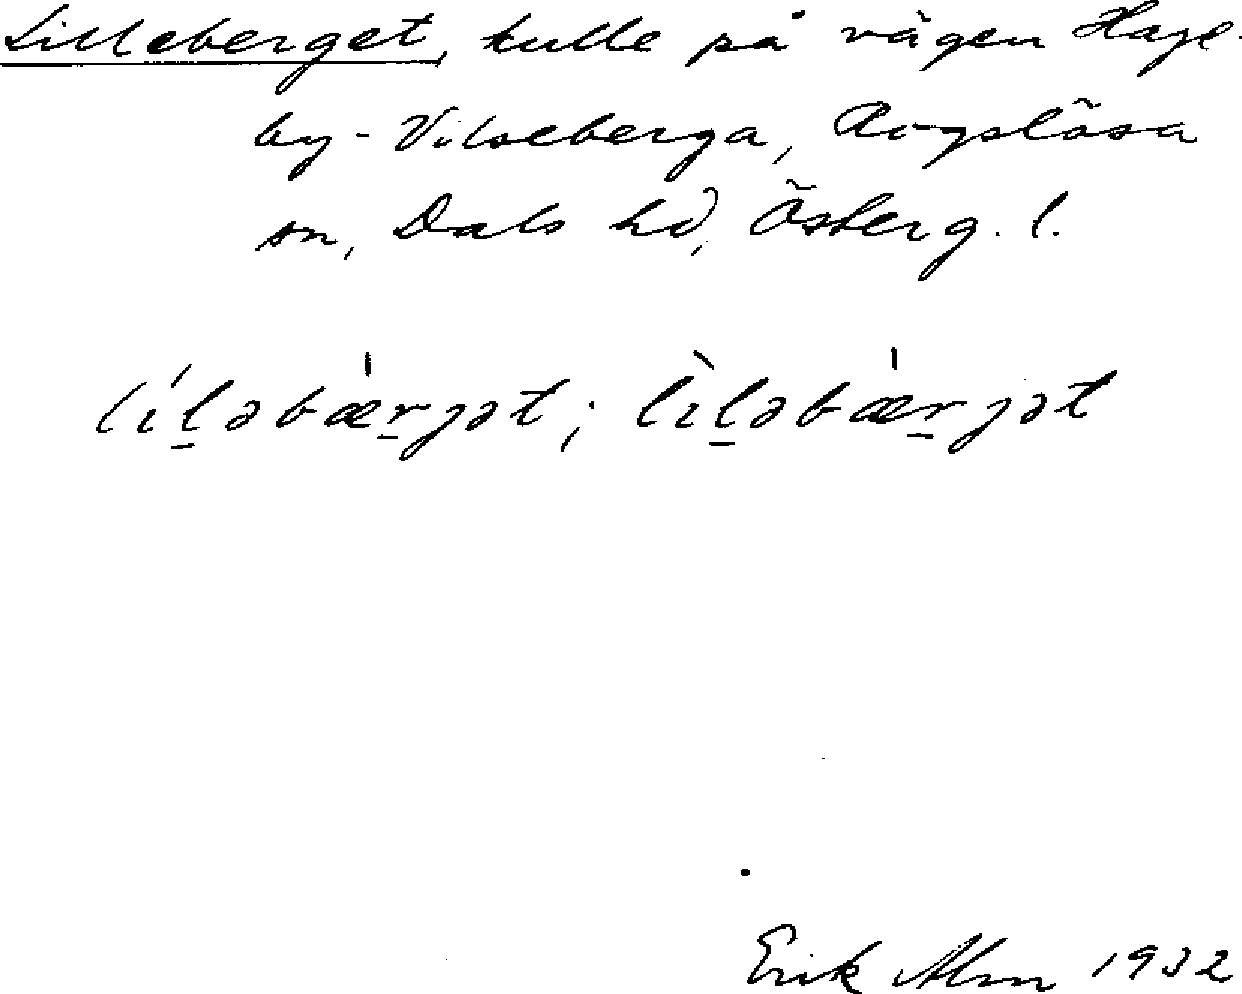 Lilleberget, kulle på vägen Hage-
by-Vilseberga, Rogslösa
sn, Dals hd, Österg. l.
lílǝbæ̀rjǝt; lìlǝbæ̀rjǝt
Erik Alm 1932